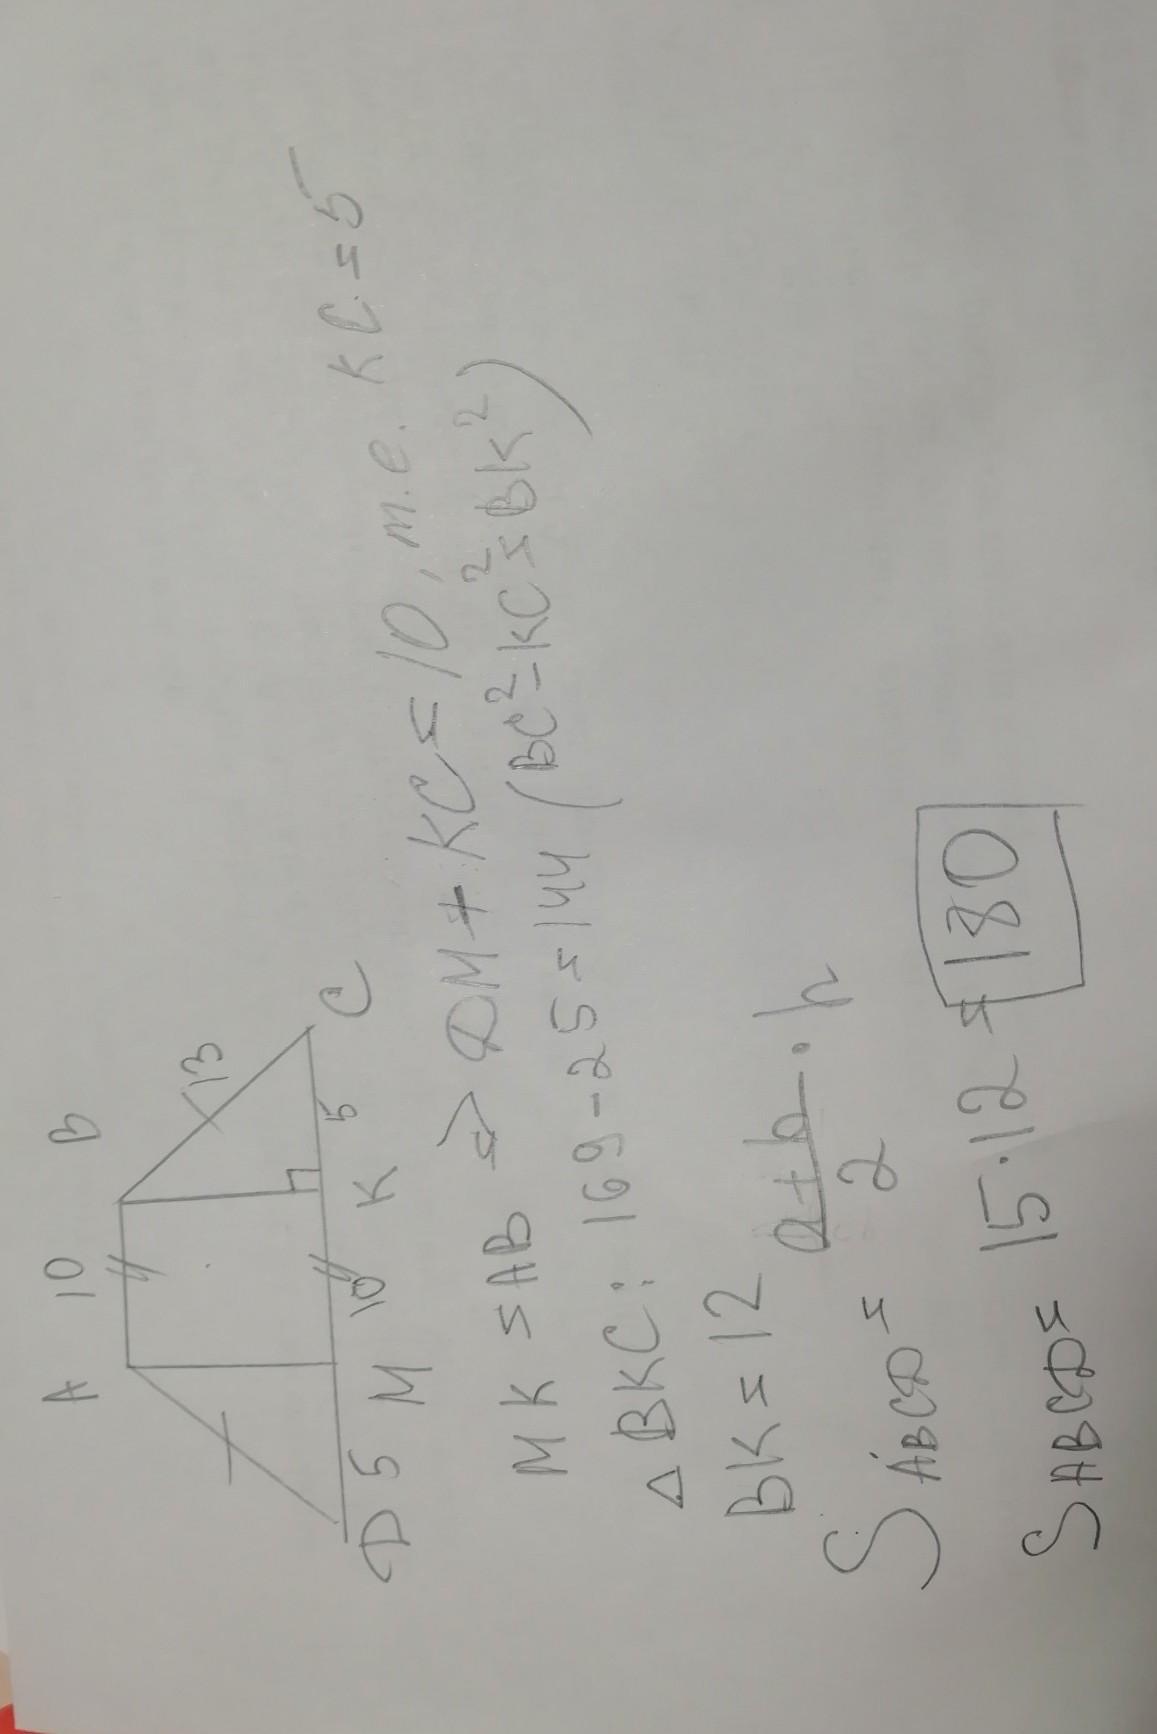 A 10 B
13
D 5 M 10 K 5 C
MK = AB => DM + KC = 10, т.е. KC = 5
△BKC: 169 - 25 = 144 (BC² - KC² = BK²)
BK = 12
S ABCD = a+b/2 · h
S ABCD = 15 · 12 = 180